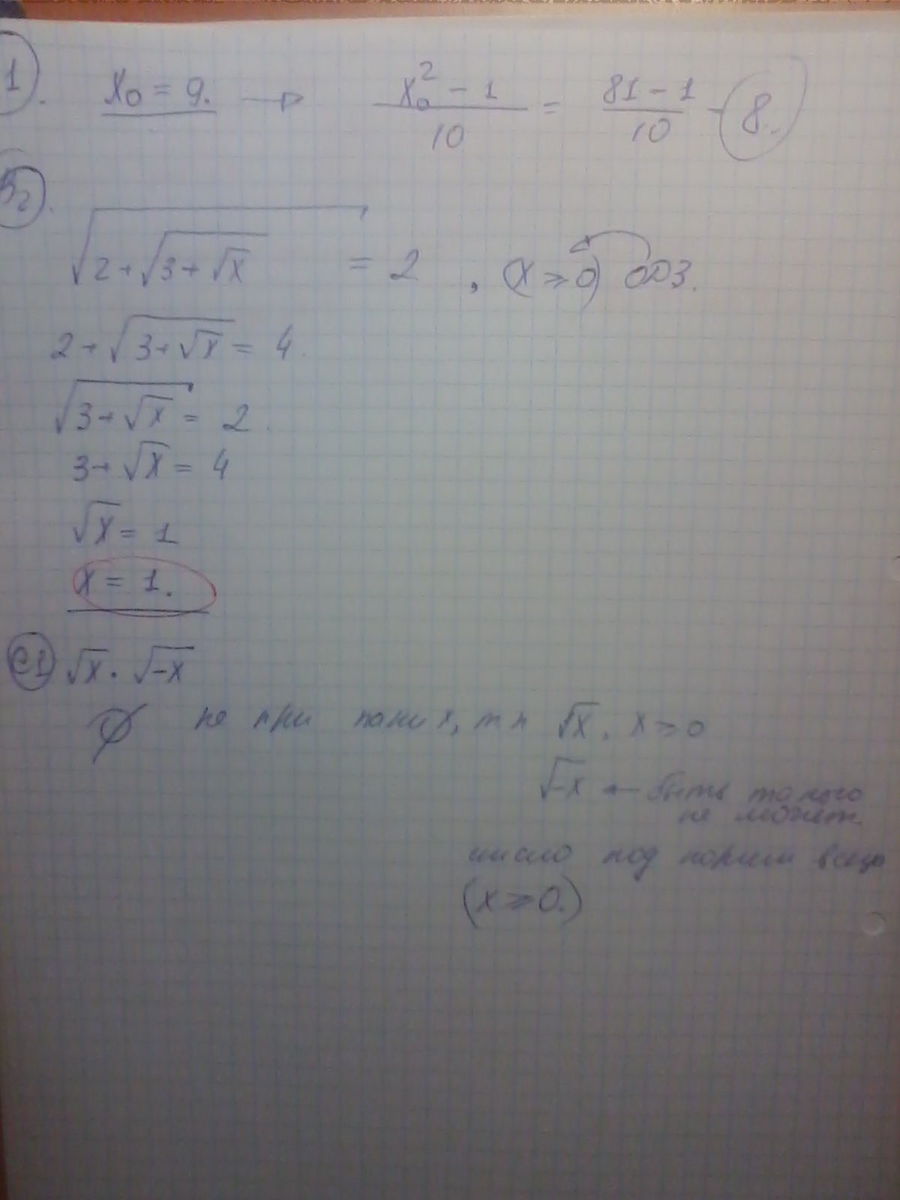 1. x₀ = 9. → (x₀² - 1)/10 = (81 - 1)/10 = 8.
В2.
√(2+√(3+√x)) = 2 , (x ≥ 0) ОДЗ.
2+√(3+√x) = 4.
√(3+√x) = 2.
3+√x = 4
√x = 1
x = 1.
С1 √x · √-x
∅ не при каких, т к √x. x ≥ 0
√-x ← быть такого
не может
число под корнем всегда
(x ≥ 0.)